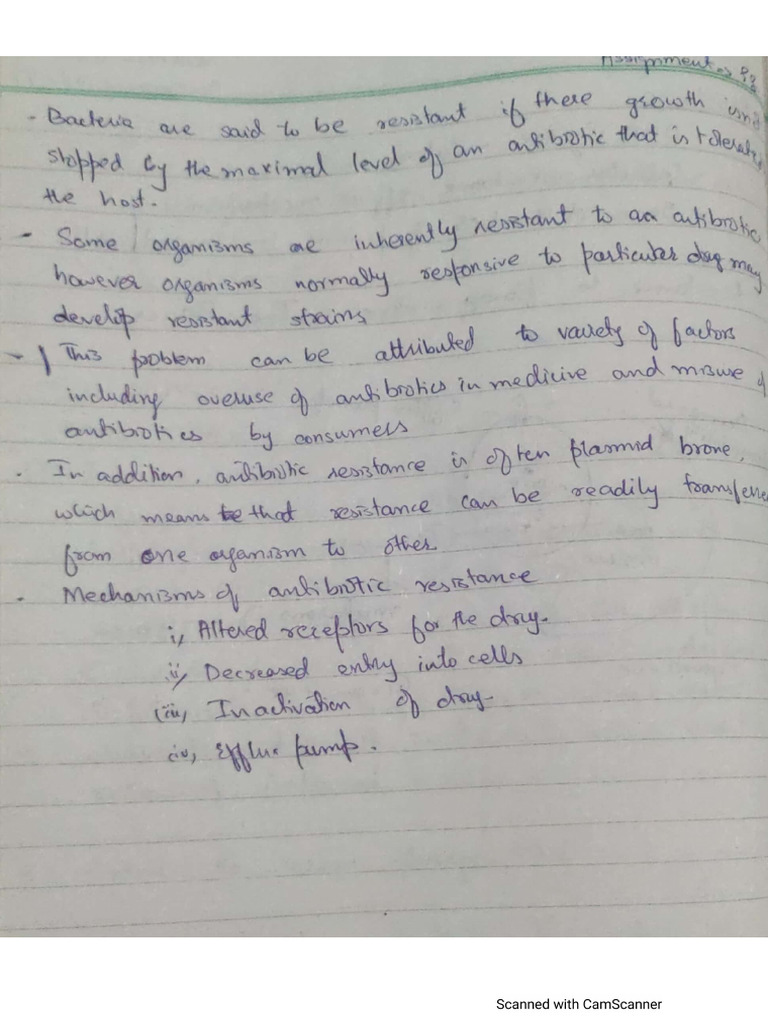 Assignment
- Bacteria are said to be resistant if there growth isn't
stopped by the maximal level of an antibiotic that is tolerated
the host.
- Some organisms are inherently resistant to an antibiotic
however organisms normally responsive to particular drug may
develop resistant strains
- This problem can be attributed to variety of factors
including overuse of antibiotics in medicive and misuse of
antibiotics by consumers
- In addition, antibiotic resistance is often plasmid brone,
which means that resistance can be readily transfere
from one organism to other
- Mechanisms of antibiotic resistance
i, Altered receptors for the drug.
ii, Decreased entry into cells
(iii, Inactivation of drug-
iv, Efflux pump.
Scanned with CamScanner